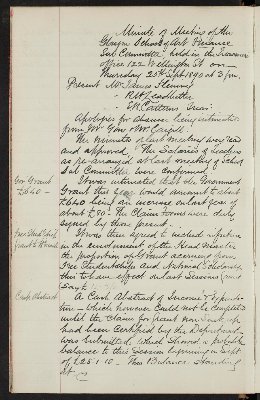 Minute of Meeting of the
Glasgow School of Art Finance
Sub Committee held in the Treasurer's
Office 122 Wellington St. on
Thursday 25th Sept. 1890 at 3 p.m.
Present Mr James Fleming
" R.A. Leadbetter
" E.R. Catterns Treas:
Apologies for absence being intimated
from Mr Gow & Mr Cargill
The Minutes of last meeting was read
and approved. The Salaries of Teachers
as re-arranged at last meeting of School
Sub Committee were confirmed.
Gov Grant
£640
It was intimated that the Government
Grant this year would amount to about
£640 being an increase on last year of
about £80. The Claim forms were duly
signed by those present.
Free Stud'ships
It was then agreed to include
in the emolument of the Head Master
the proportion of Grant accruing from
Free Studentships and National Scholars
this to have effect on last Sessions
Cash Abstract
A Cash Abstract of Income & Expendi-
ture – which however could not be completed
until the Claim for Grant
had been certified by the Department –
was submitted, which showed a probable
balance to this Session beginning in Sept
of £251.10 – This Balance standing
at